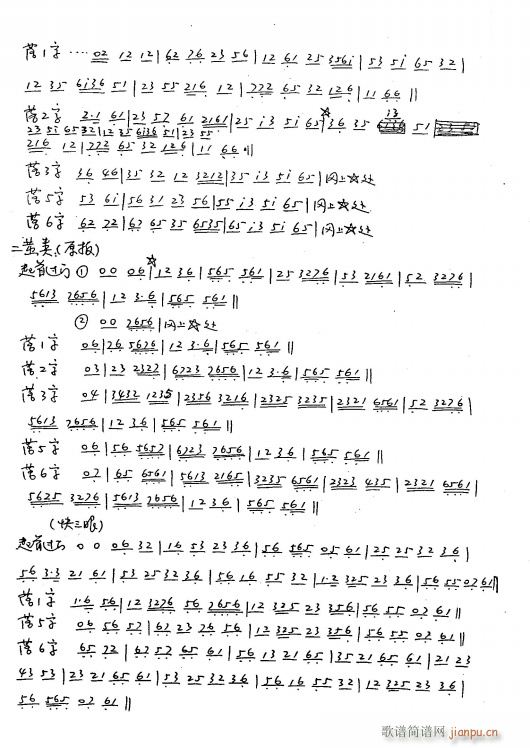 落1字 ···· 02 12 12 | 62 76 23 56 | 12 61 25 3561 | 53 5i 65 32 |
12 35 6i36 51 | 23 55 216 12 | 7772 65 32 126 | 11 66 ||
落2字 2·1 61 | 23 57 61 2161 | 25 i3 5i 65 ☆ | 36 35 51
23 5i 65 32 | 12 35 6i36 51 | 23 55
216 12 | 7772 65 32 126 | 11 66 ||
落3字 36 46 | 35 32 12 3212 | 35 i3 5i 65 | 同上☆处
落5字 53 61 | 56 31 23 56 | 55 i3 5i 65 | 同上☆处
落6字 62 72 | 62 65 35 6535 | 65 i3 5i 65 | 同上☆处
二黄类(原板)
起首过门 ① 00 06 ☆ | 12 36 | 565 561 | 25 3276 | 53 2161 | 52 3276 |
5613 2656 | 12 3·6 | 565 561 ||
② 00 2656 | 同上☆处
落1字 06 | 26 5626 | 12 3·6 | 565 561 ||
落2字 03 | 23 2322 | 6723 7656 | 12 36 | 565 561 ||
落3字 04 | 3432 1235 | 2356 3216 | 2325 3235 | 2321 6561 | 52 3276 |
5613 7656 | 12 36 | 565 561 ||
落5字 06 | 56 5657 | 6723 7656 | 12 36 | 565 561 ||
落6字 07 | 65 6561 | 5613 2165 | 3235 6561 | 2323 435 | 2321 6561 |
5625 3276 | 5613 7656 | 12 36 | 565 561 ||
(快三眼)
起首过门 0 0 06 32 | 16 53 23 36 | 56 565 05 61 | 25 25 32 36 |
56 3·3 21 61 | 53 25 32 36 | 56 16 55 32 | 1·2 325 23 36 | 56 55 02 61 ||
落1字 1·6 56 | 12 3276 56 2656 | 12 325 23 356 | 56 55 02 61 ||
落5字 06 56 57 | 62 23 76 56 | 12 325 23 356 | 56 55 02 61 ||
落6字 65 72 | 62 57 65 61 | 56 13 21 65 | 35 21 65 61 | 21 23
43 53 | 23 21 65 61 | 53 25 32 36 | 56 16 55 32 | 12 325 23 36 |
56 565 02 61 ||
歌谱简谱网
jianpu.cn